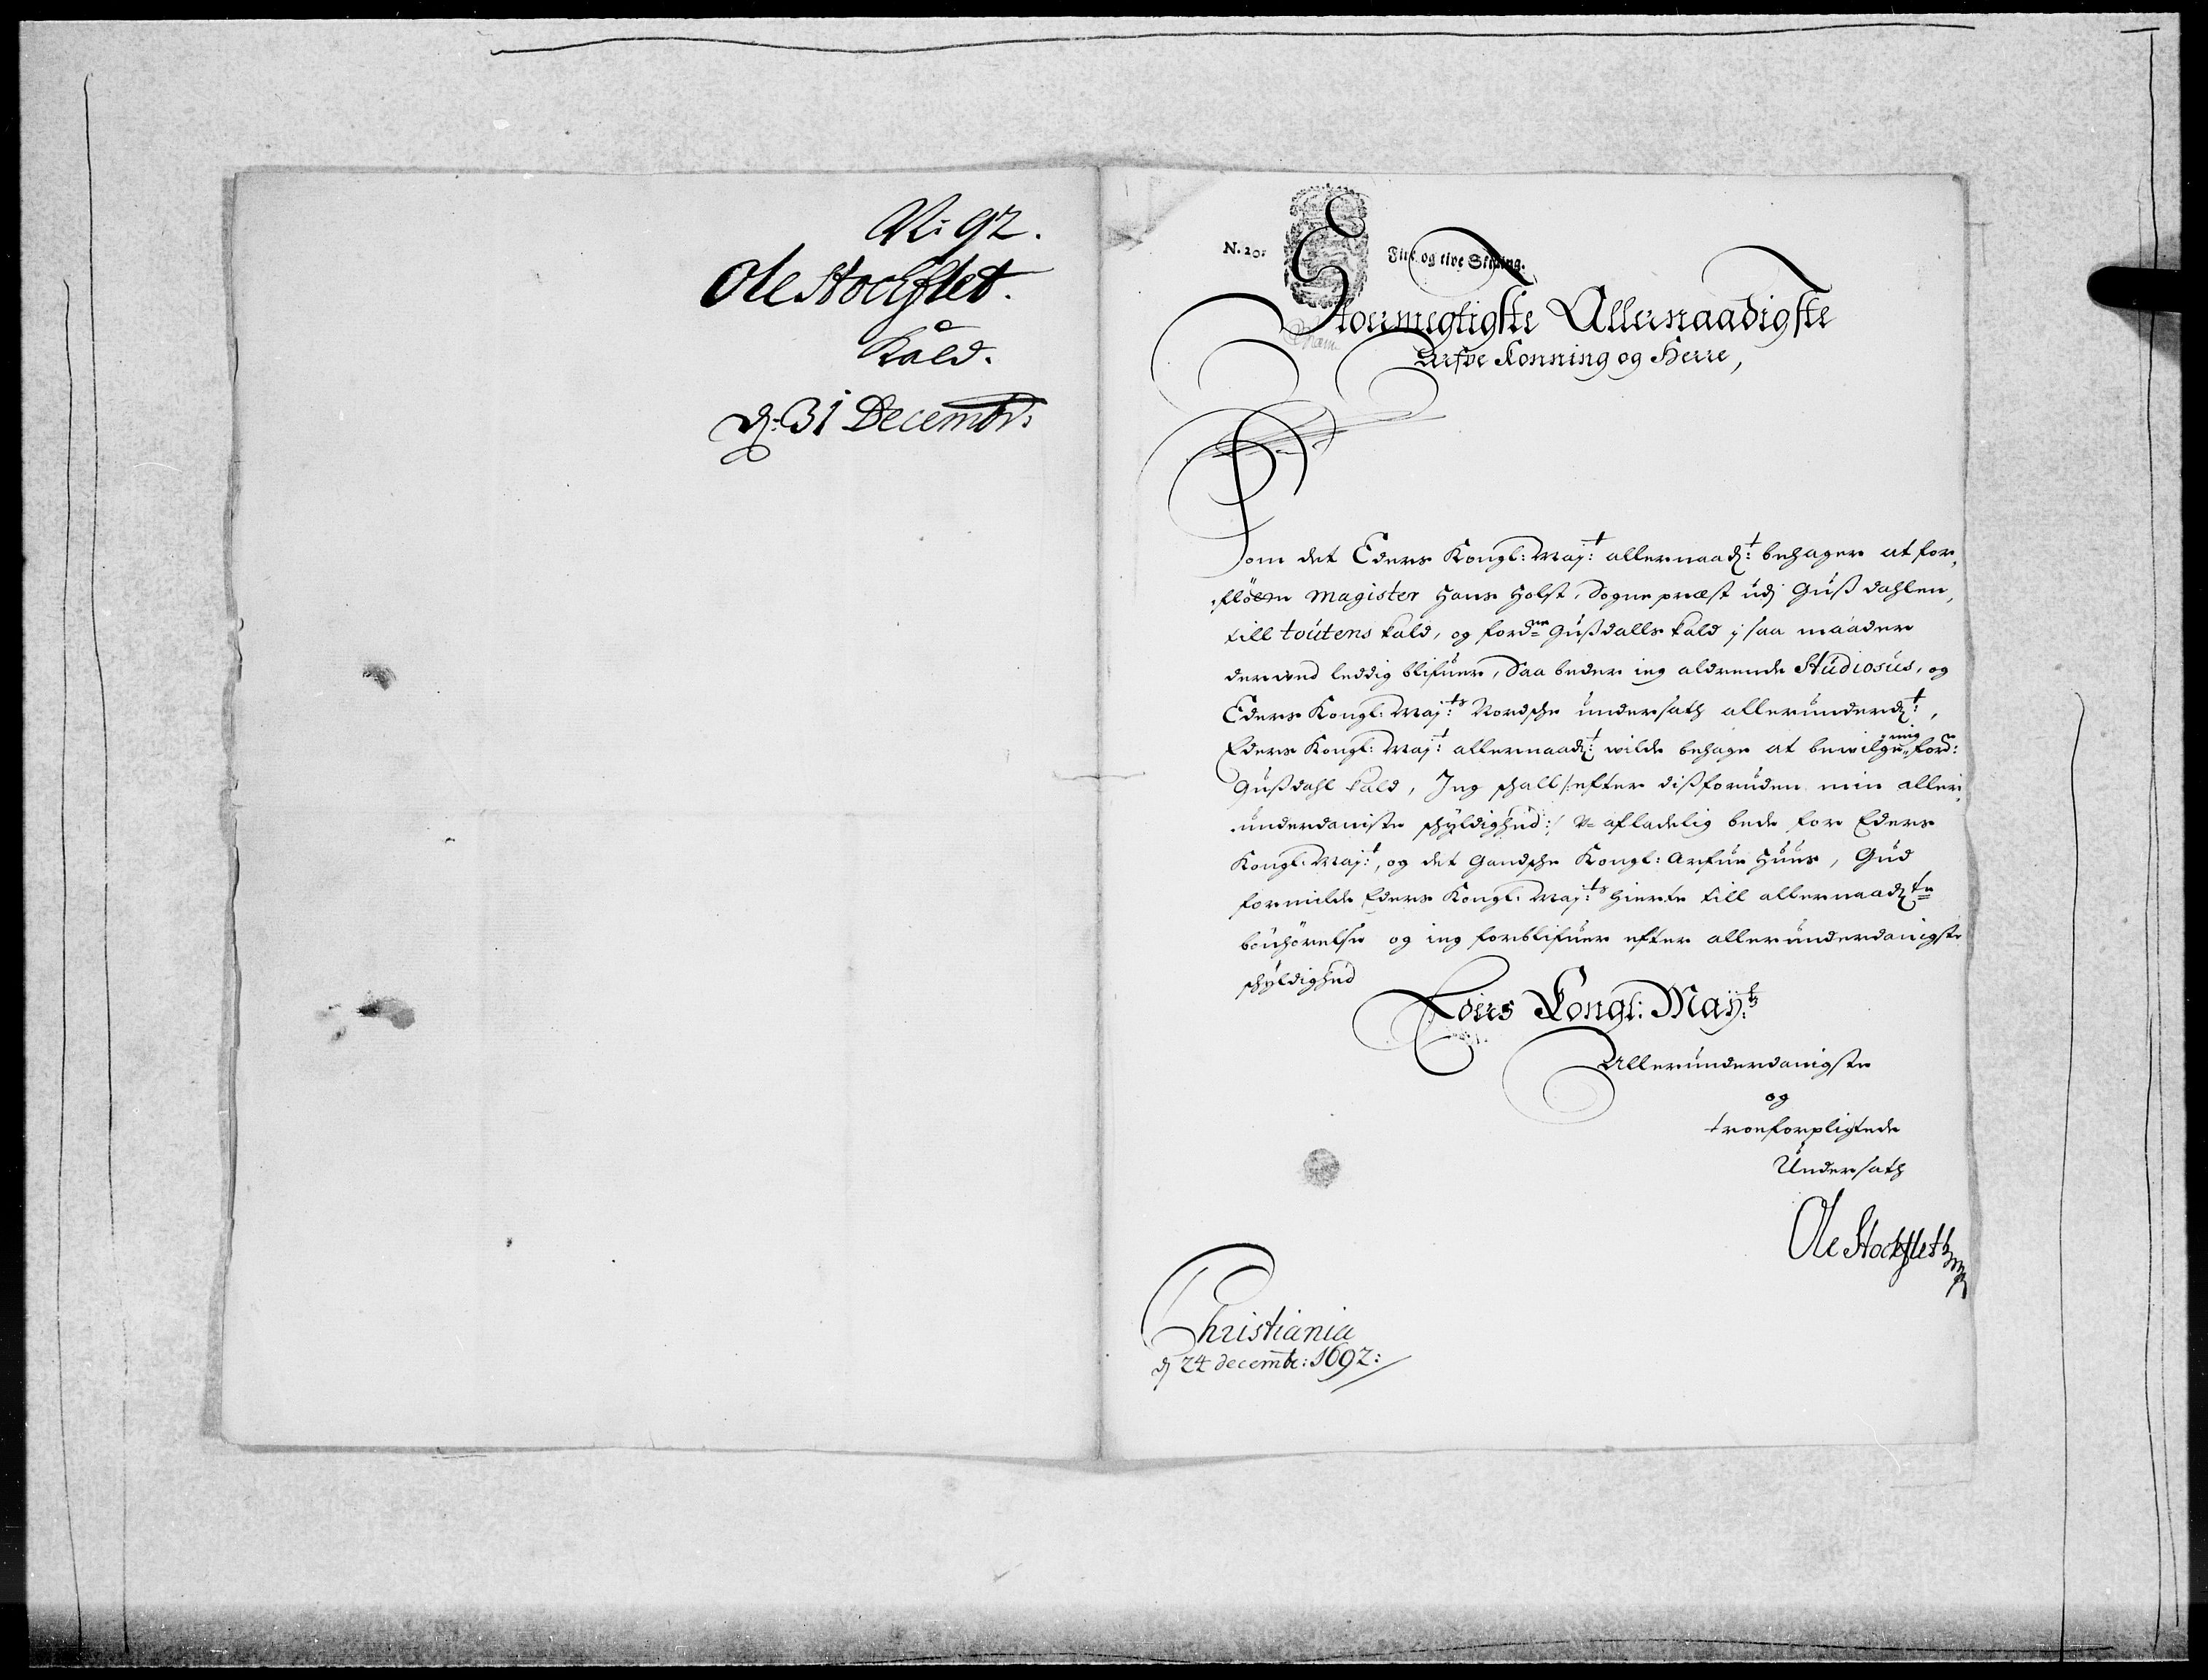 N: 92.
Ole Stockflet.
Kald.
d: 31 Decembr:
N. 20:
Fire og tive Skilling.
Stoermegtigste Allernaadigste
Arfve Konning og Herre,
Som det Eders Kongl: Maj:t allernaad:t behager at for,
,fløtte Magister Hans Holst, Sogne præst udj Gußdahlen,
till toutens kald, og fordne Gußdalls kald j saa maader
derved leddig blifuer, Saa beder ieg aldrende Studiosus, og
Eders Kongl: Maj:ts Nordsche undersath allerunderd:t,
Eders Kongl: Maj:t allernaad:t wilde behage at bewilge mig ford:e
Gußdahl kald, Jeg schall /:efter dißforuden min aller,
,underdaniste schyldighed:/ u=afladelig bede for Eders
Kongl: Maj:t, og det gandsche Kongl: Arfue Huus, Gud
formilde Eders Kongl: Maj:ts Hierte till allernaad:te
bönhörelse og ieg forblifuer efter allerunderdanigste
schyldighed
Eders Kongl: May:tz
Allerunderdanigste
og
troeforpligtede
Undersath
Ole Stockfleth
Christiania
d 24 decembr: 1692: